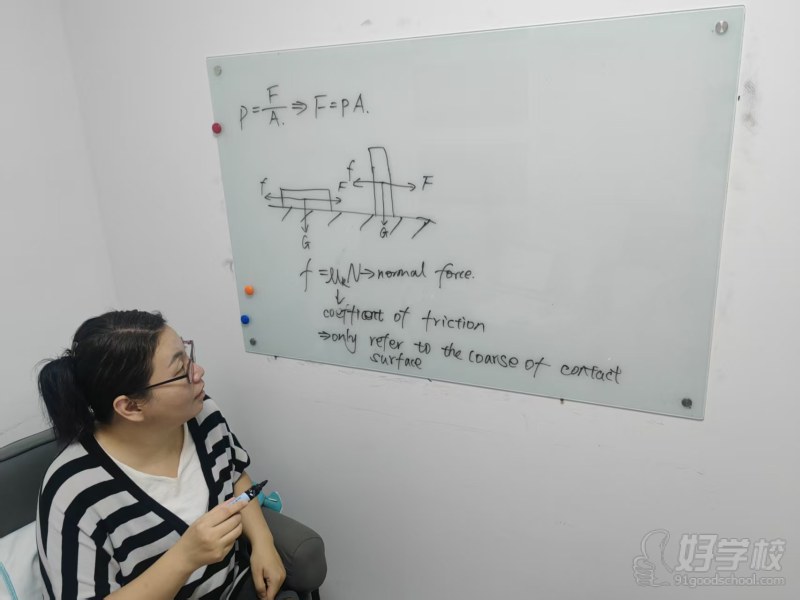 P = F/A. ⇒ F = PA.
f F
G
f F
G
f = μₖN → normal force.
↓
coefficient of friction
⇒ only refer to the coarse of contact
surface
好学校
91goodschool.com